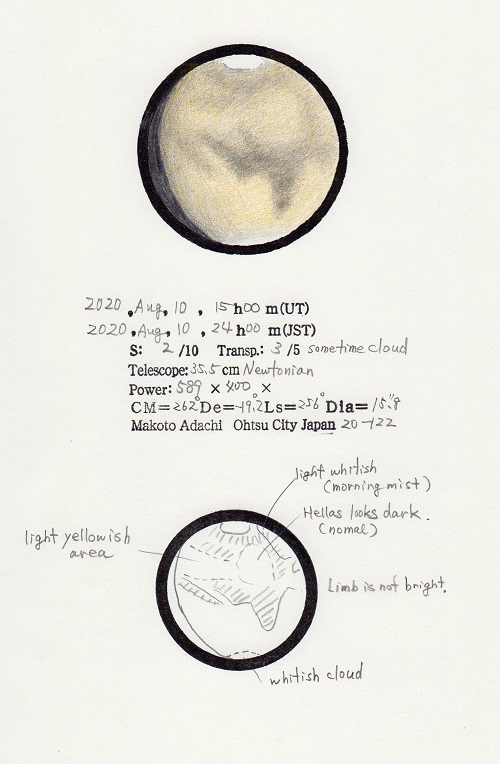 2020, Aug, 10, 15h00m(UT)
2020, Aug, 10, 24h00m(JST)
S: 2 /10 Transp.: 3 /5 sometime cloud
Telescope: 35.5 cm Newtonian
Power: 589 × 400 ×
CM=262° De=-19.2 Ls=256° Dia=15.″8
Makoto Adachi Ohtsu City Japan 20-122
light whitish
(morning mist)
Hellas looks dark.
(nomal)
light yellowish
area
Limb is not bright.
whitish cloud